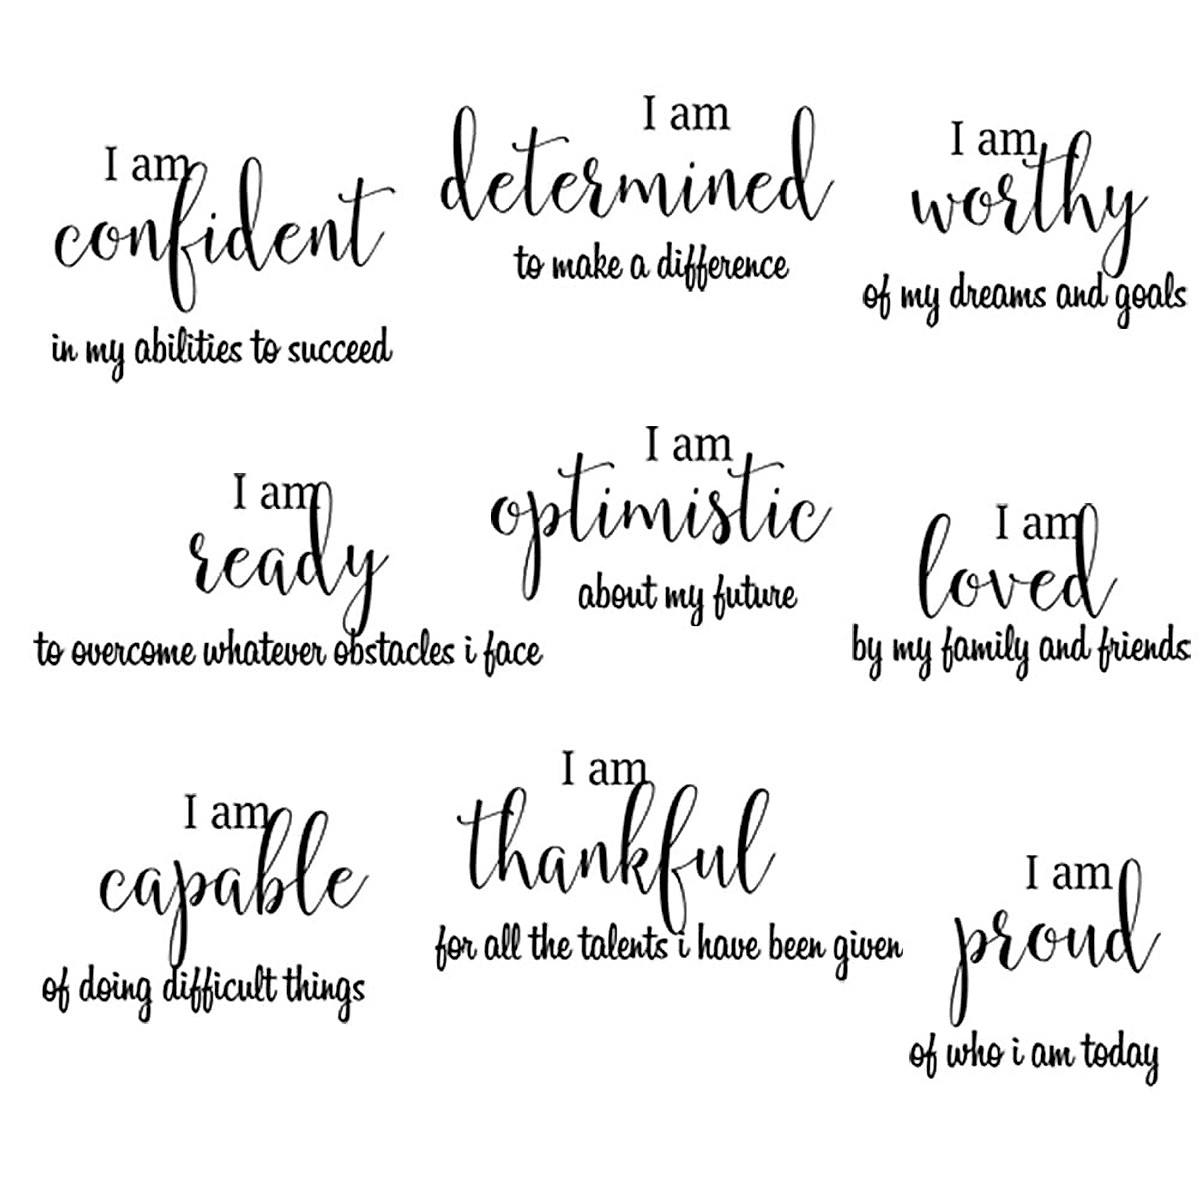 I am
confident
in my abilities to succeed
I am
determined
to make a difference
I am
worthy
of my dreams and goals
I am
ready
to overcome whatever obstacles i face
I am
optimistic
about my future
I am
loved
by my family and friends
I am
capable
of doing difficult things
I am
thankful
for all the talents i have been given
I am
proud
of who i am today